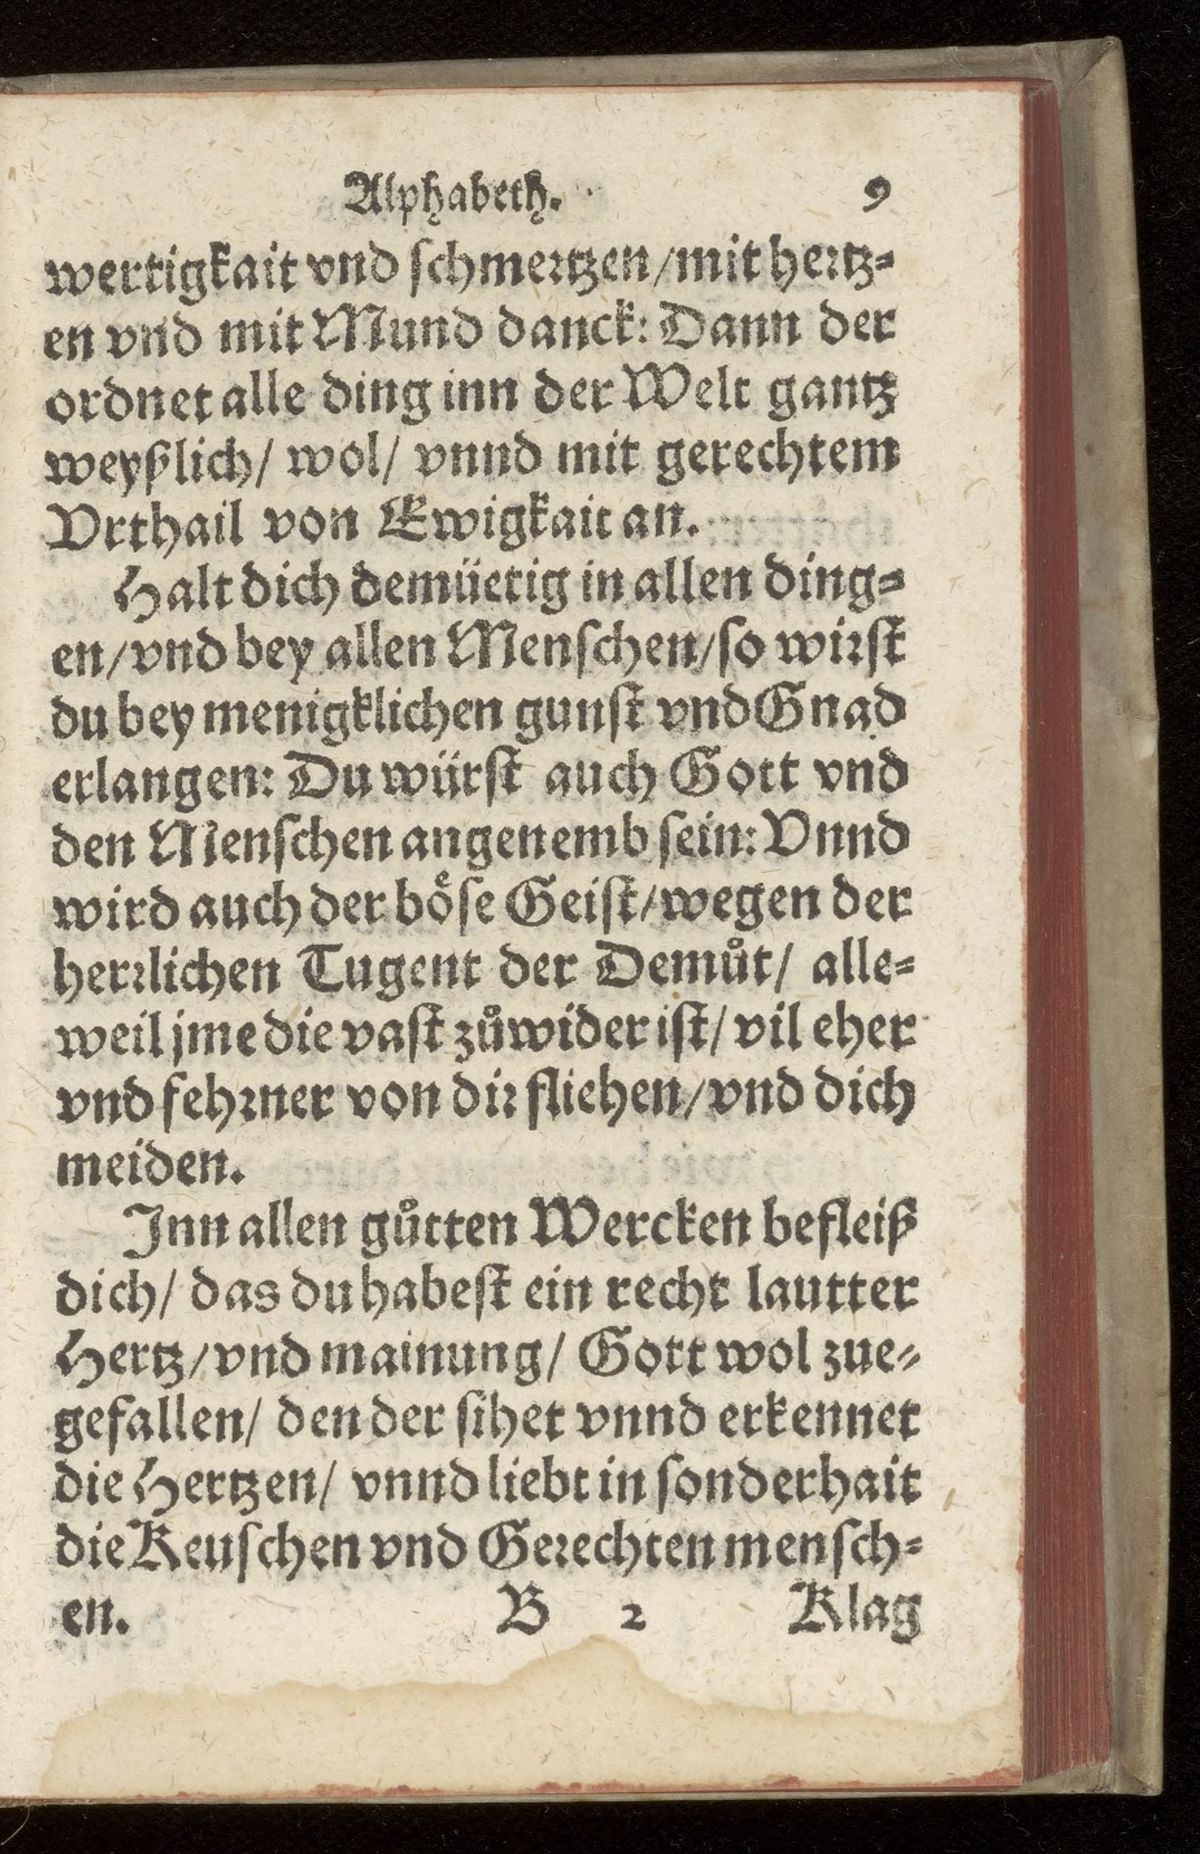 Alphabeth. 9
wertigkait vnd schmertzen/mit hertz-
en vnd mit Mund danck: Dann der
ordnet alle ding inn der Welt gantz
weyßlich/ wol/ vnnd mit gerechtem
Vrthail von Ewigkait an.
Halt dich demüetig in allen ding-
en/vnd bey allen Menschen/so wirst
du bey menigklichen gunst vnd Gnad
erlangen: Du würst auch Gott vnd
den Menschen angenemb sein: Vnnd
wird auch der böse Geist/wegen der
herrlichen Tugent der Demůt/ alle-
weil jme die vast zůwider ist/ vil eher
vnd fehrner von dir fliehen/vnd dich
meiden.
Inn allen gůtten Wercken befleiß
dich/ das du habest ein recht lautter
Hertz/vnd mainung/ Gott wol zue-
gefallen/ den der sihet vnnd erkennet
die Hertzen/ vnnd liebt in sonderhait
die Keuschen vnd Gerechten mensch-
en. B 2 Klag